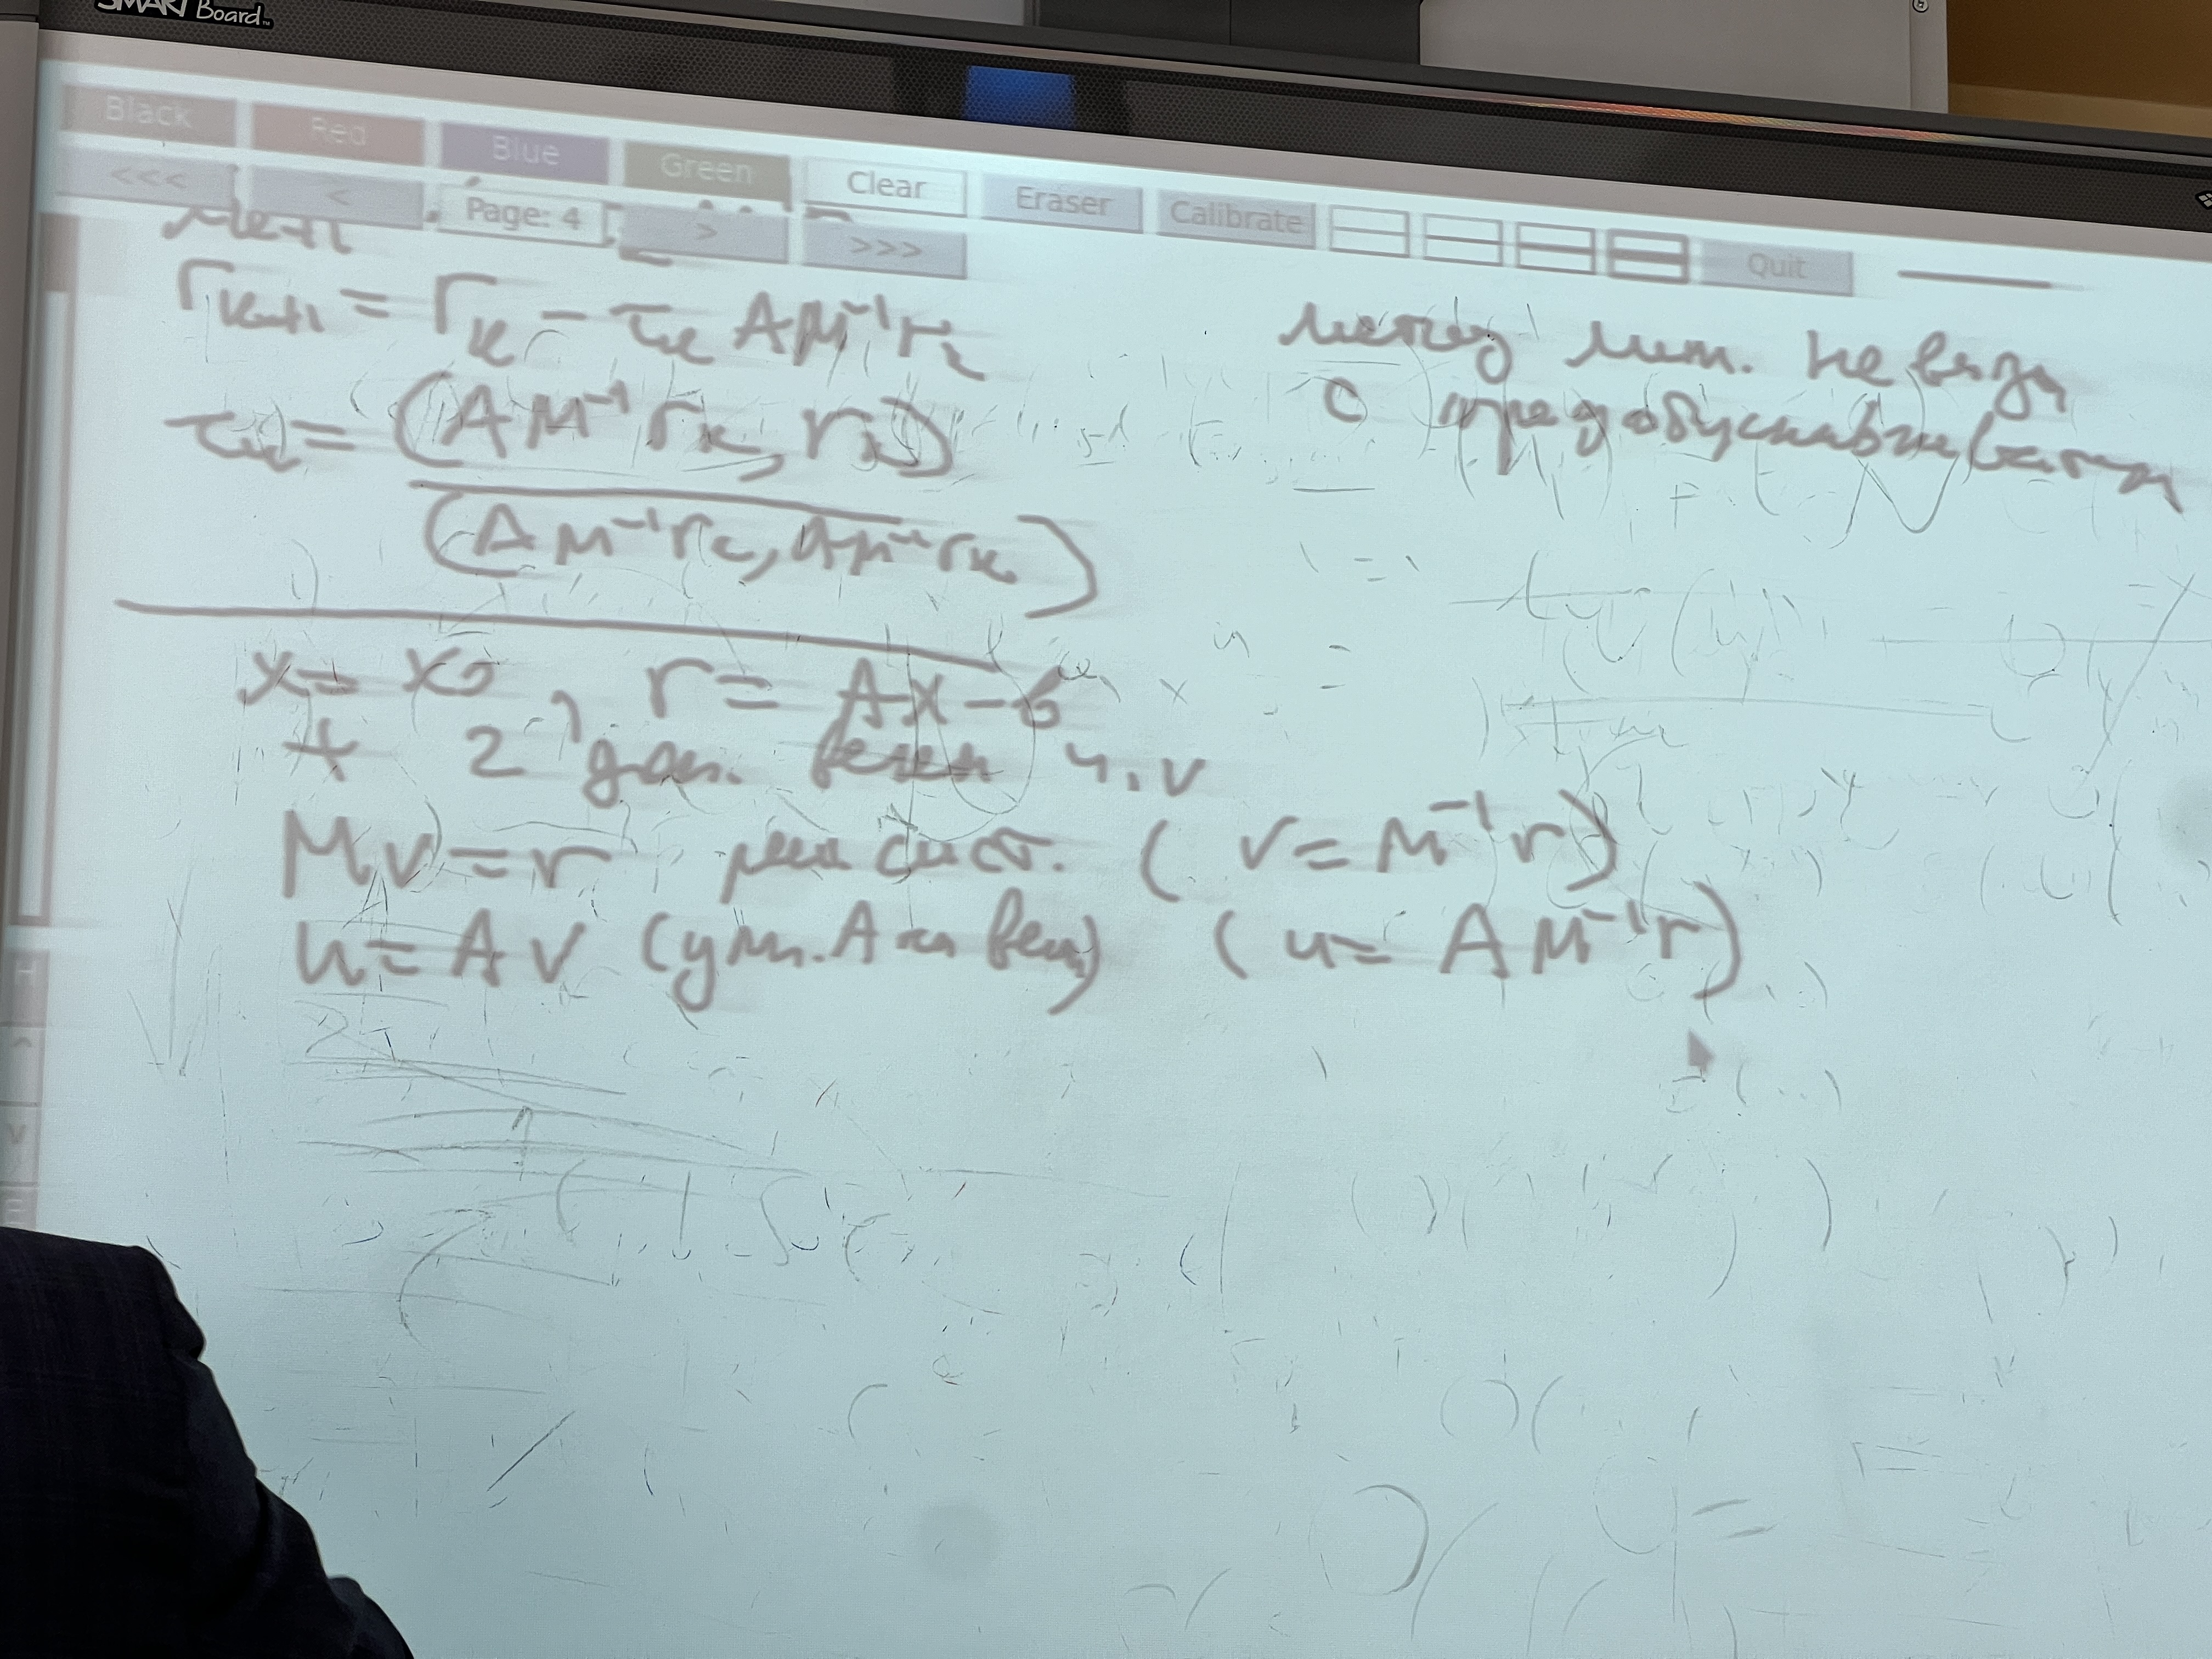 SMART Board
Black Red Blue Green Clear Eraser Calibrate Quit
<<< < Page: 4 > >>>
r_{k+1} = r_k - τ_k A M⁻¹ r_k
τ_k = (A M⁻¹ r_k, r_k)
(A M⁻¹ r_k, A M⁻¹ r_k)
метод мин. невязк
с предобуславливателем
x = x₀, r = Ax - b
+ 2 доп. вектора u, v
Mv = r реш сист. (v = M⁻¹ r)
u = A v (умн. A на век) (u = A M⁻¹ r)